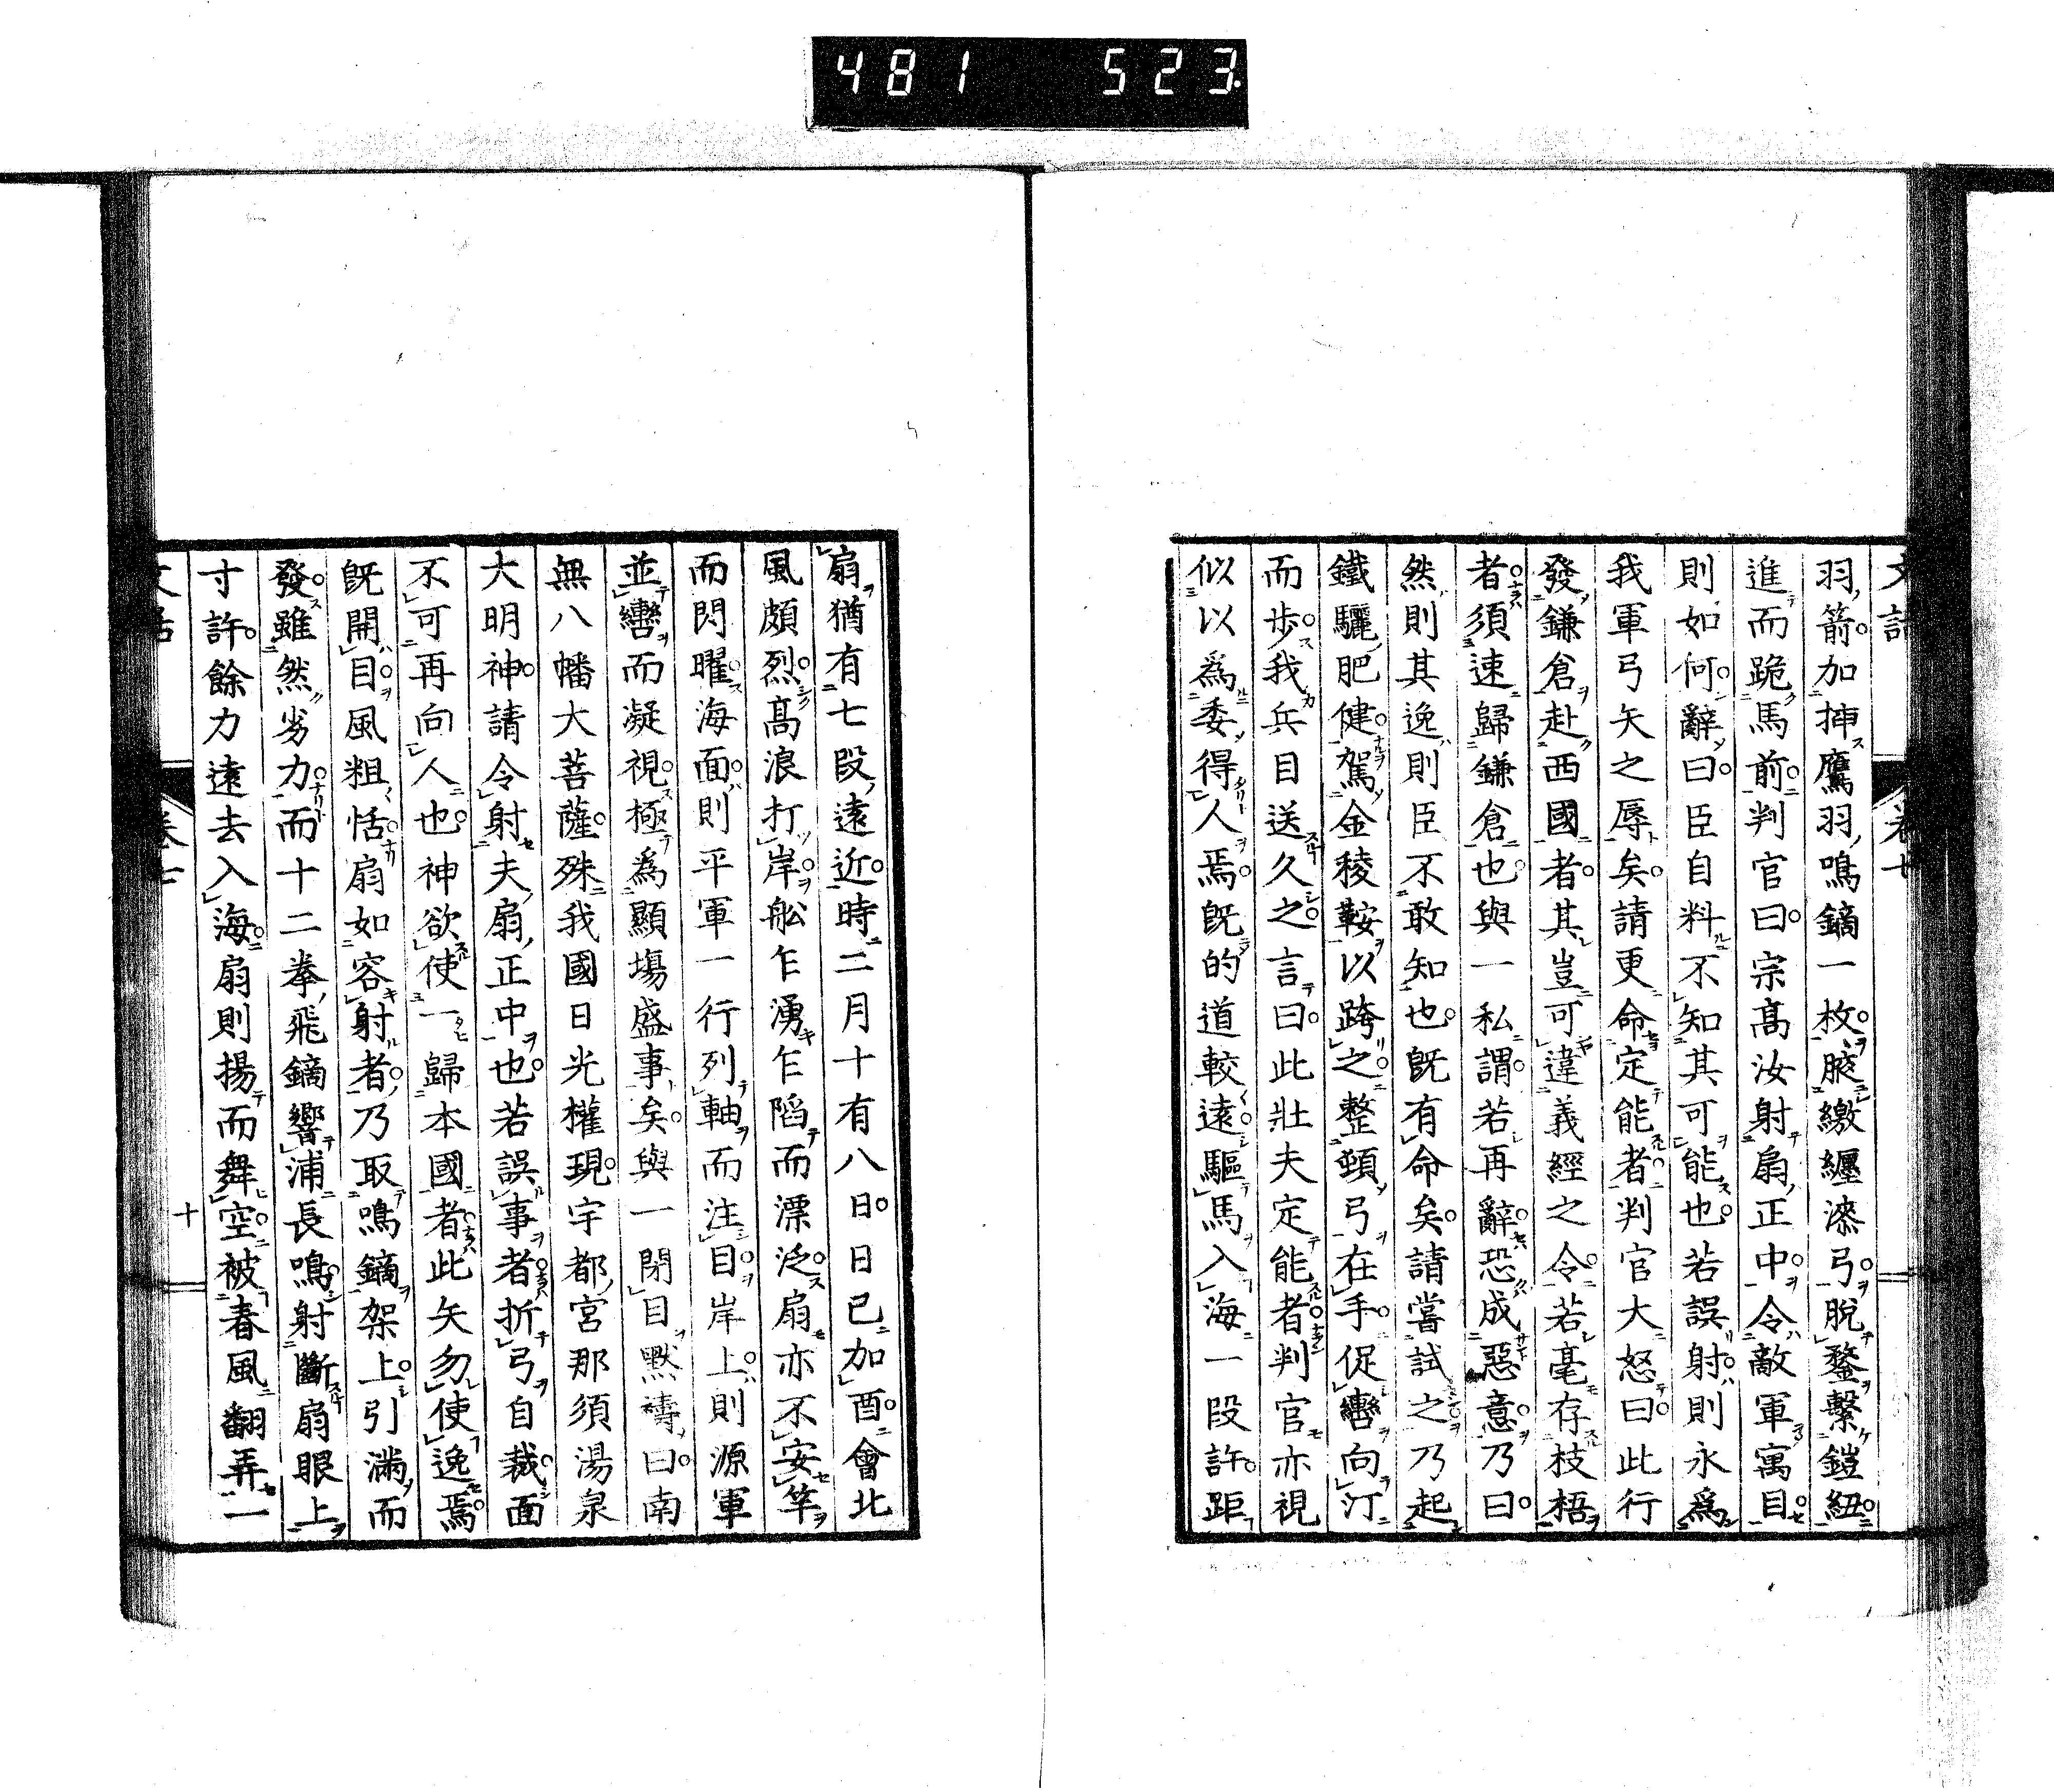 481 523.
羽箭加挿鷹羽鳴鏑一枚腋繳纒漆弓脫鍪繫鎧紐
進而跪馬前判官曰宗髙汝射扇正中令敵軍寓目
則如何辭曰臣自料不知其可能也若誤射則永爲
我軍弓矢之辱矣請更命定能者判官大怒曰此行
發鎌倉赴西國者其豈可違義經之令若毫存枝梧
者須速歸鎌倉也與一私謂若再辭恐成惡意乃曰
然則其逸則臣不敢知也既有命矣請嘗試之乃起
鐵驪肥健駕金稜鞍以跨之整頓弓在手促轡向汀
而步我兵目送久之言曰此壯夫定能者判官亦視
似以爲委得人焉既的道較遠驅馬入海一段許距
扇猶有七段遠近時二月十有八日日已加酉會北
風頗烈髙浪打岸舩乍湧乍陷而漂泛扇亦不安竿
而閃曜海面則平軍一行列軸而注目岸上則源軍
並轡而凝視極爲顯塲盛事矣與一閉目默禱曰南
無八幡大菩薩殊我國日光權現宇都宮那須湯泉
大明神請令射夫扇正中也若誤事者折弓自裁面
不可再向人也神欲使一歸本國者此矢勿使逸焉
既開目風粗恬扇如容射者乃取鳴鏑架上引滿而
發雖然劣力而十二拳飛鏑響浦長鳴射斷扇眼上
寸許餘力遠去入海扇則揚而舞空被春風翻弄一
十